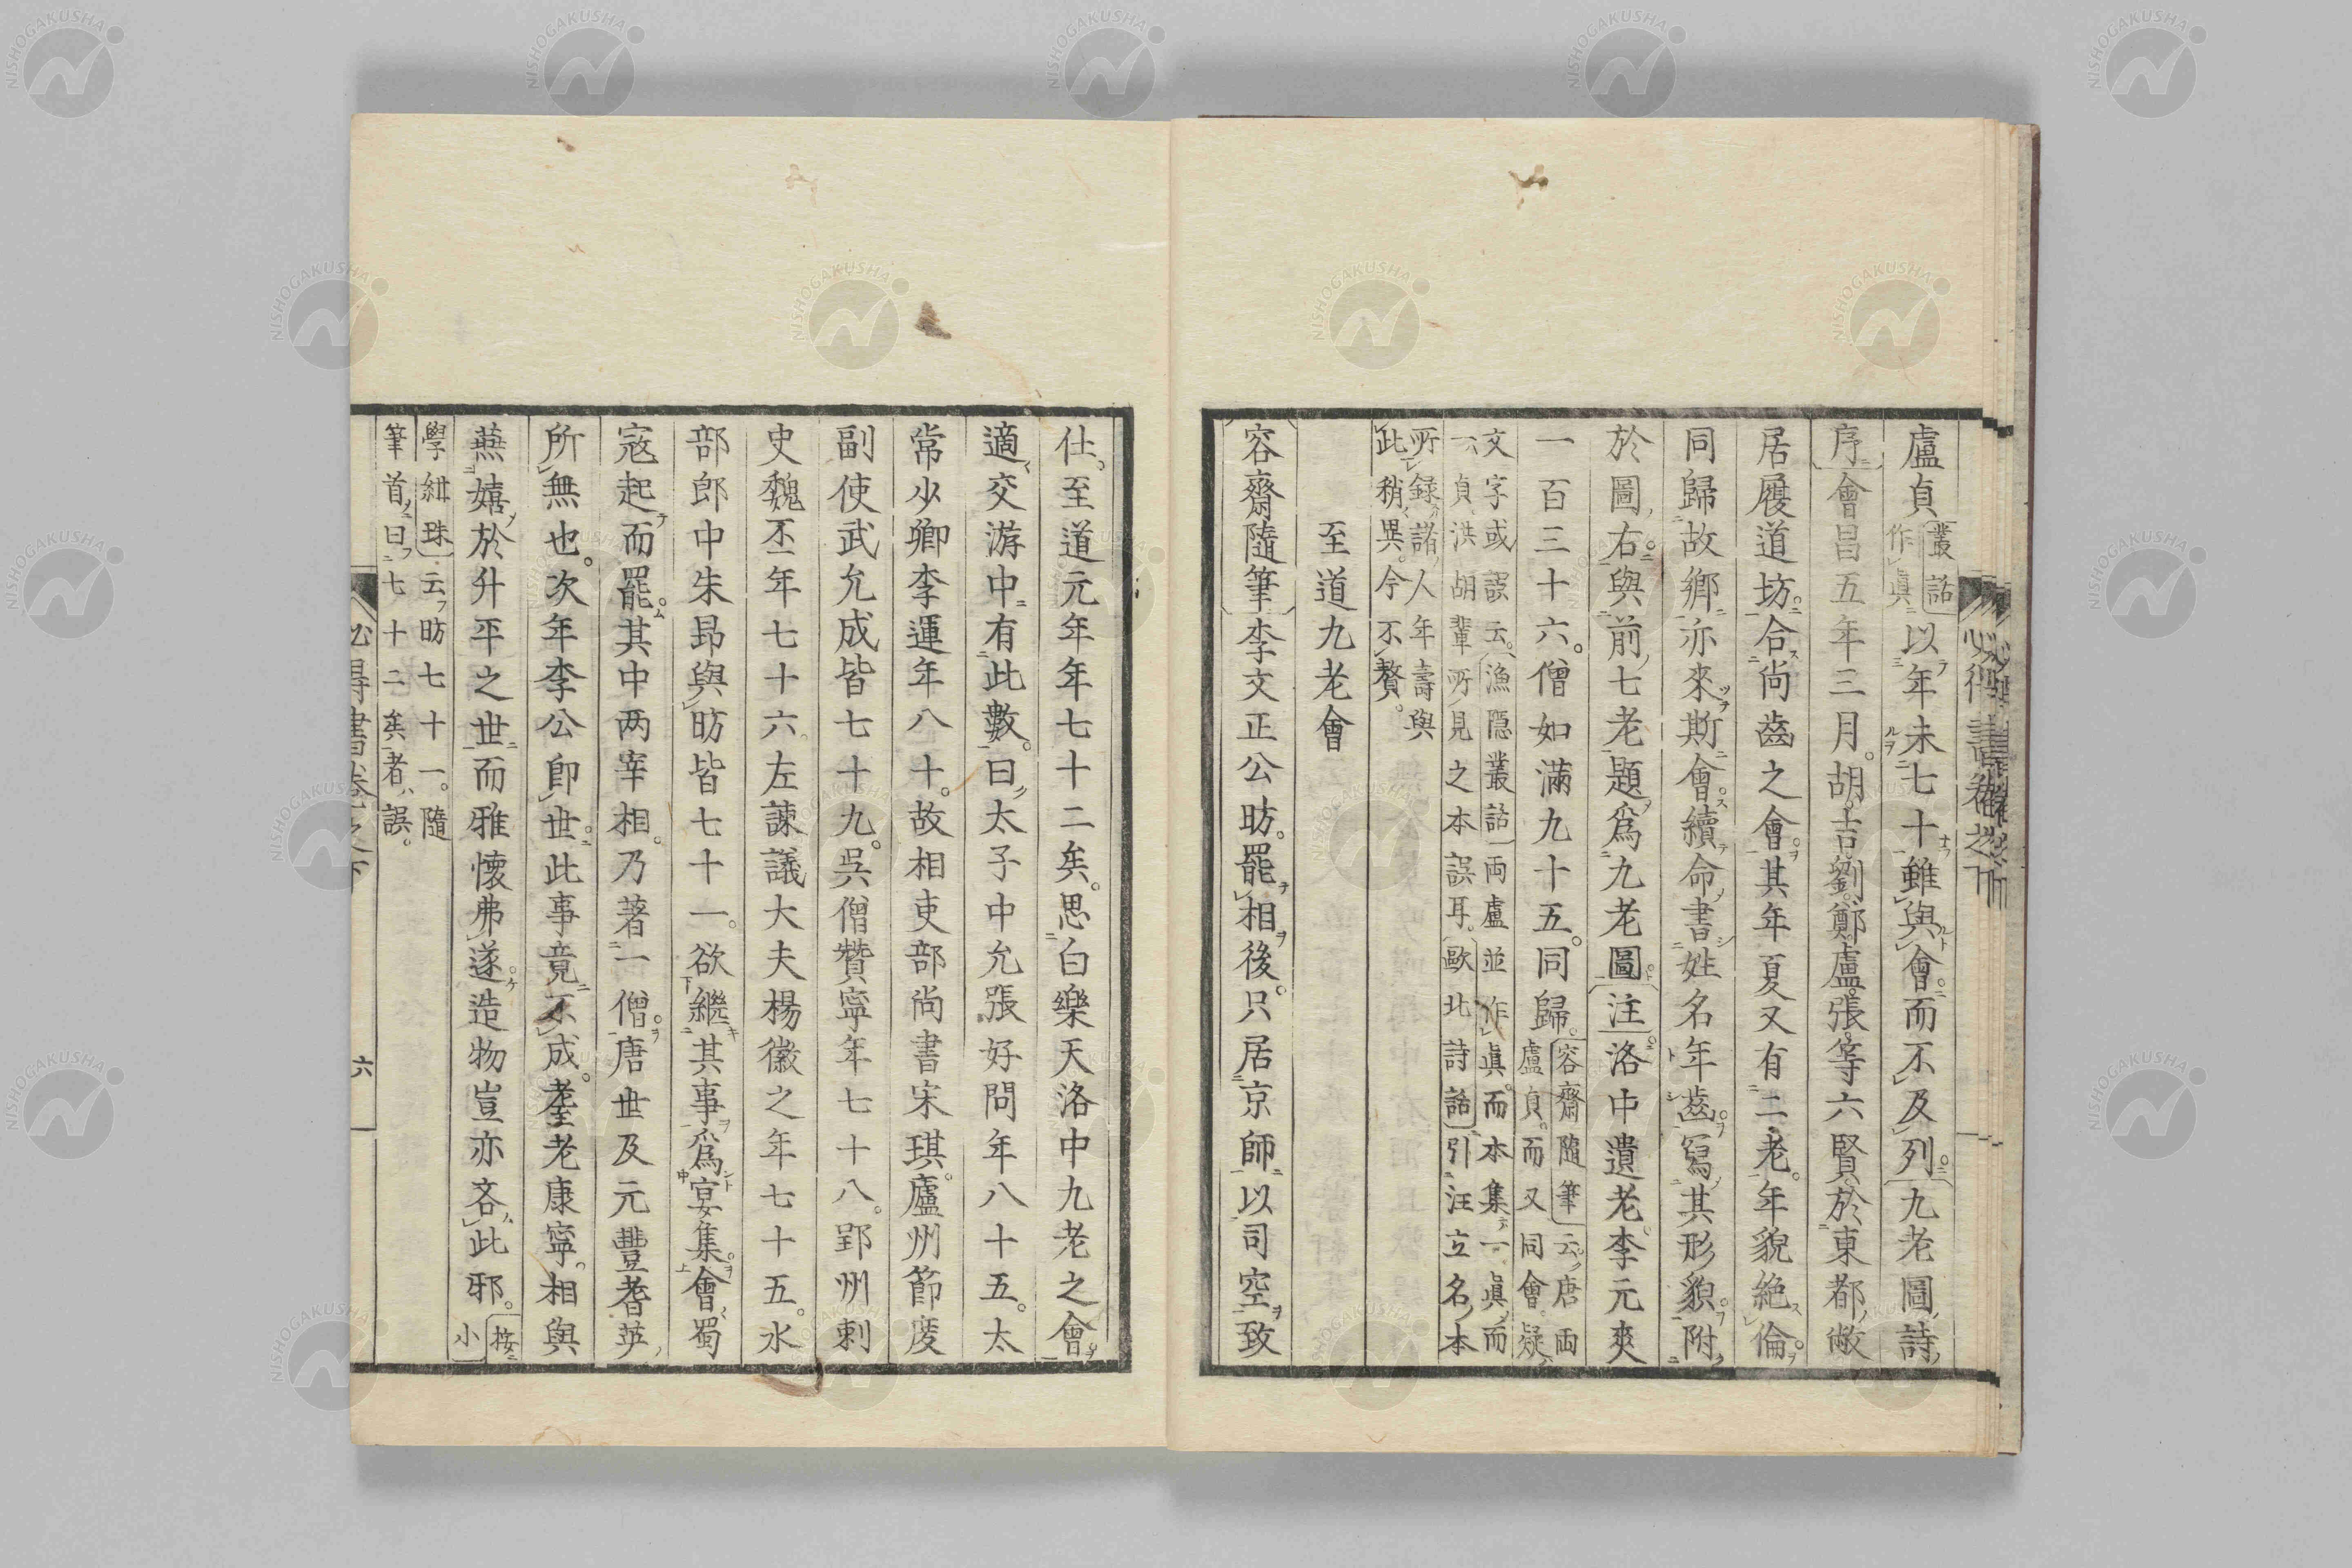 盧貞叢話作眞以年未七十雖與會而不及列九老圖詩
序會昌五年三月胡吉劉鄭盧張等六賢於東都敝
居履道坊合尚齒之會其年夏又有二老年貌絶倫
同歸故鄉亦來斯會續命書姓名年齒寫其形貌附
於圖右與前七老題爲九老圖注洛中遺老李元爽
一百三十六僧如滿九十五同歸容齋隨筆云唐兩盧貞而又同會疑
文字或誤云漁隱叢話兩盧並作眞而本集一眞而
一貞洪胡輩所見之本誤耳歐北詩話引汪立名本
所録諸人年壽與
此稍異今不贅
至道九老會
容齋隨筆李文正公昉罷相後只居京師以司空致
仕至道元年年七十二矣思白樂天洛中九老之會
適交游中有此數曰太子中允張好問年八十五太
常少卿李運年八十故相吏部尚書宋琪廬州節度
副使武允成皆七十九吳僧贊寧年七十八郢州刺
史魏丕年七十六左諫議大夫楊徽之年七十五水
部郎中朱昂與昉皆七十一欲繼其事爲宴集會蜀
寇起而罷其中两宰相乃著一僧唐世及元豐耆英
所無也次年李公即世此事竟不成耋老康寧相與
燕嬉於升平之世而雅懷弗遂造物豈亦吝此邪按小
學紺珠云昉七十一隨
筆首曰七十二矣者誤
心得書卷之下
六